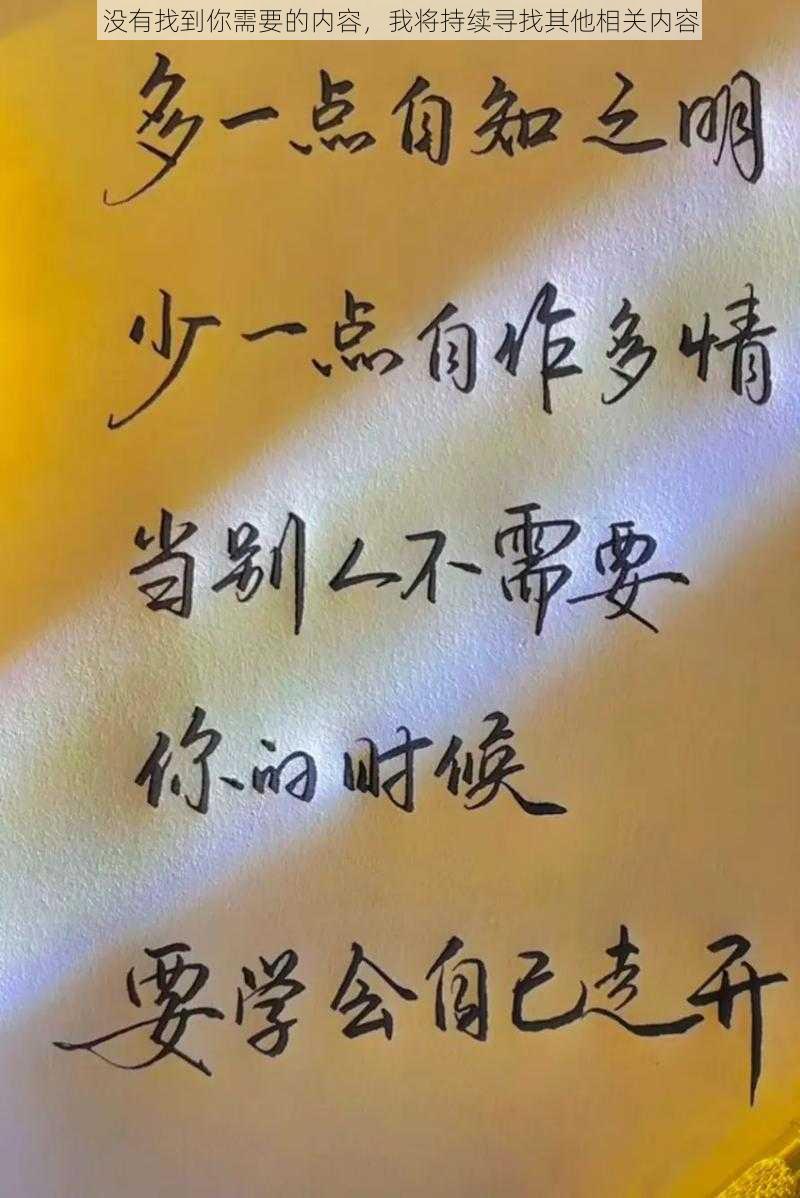 没有找到你需要的内容，我将持续寻找其他相关内容
多一点自知之明
少一点自作多情
当别人不需要
你的时候
要学会自己走开